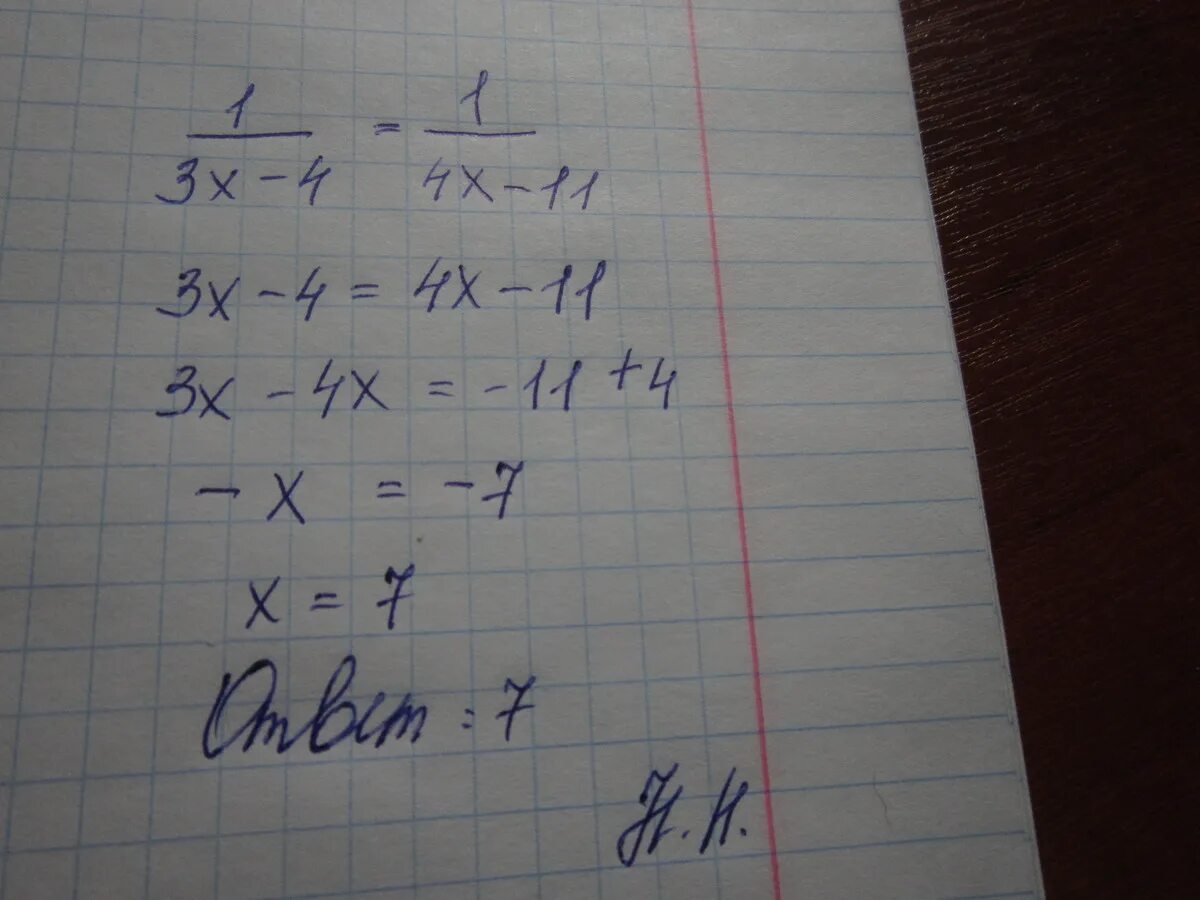 1/(3x-4) = 1/(4x-11)
3x-4 = 4x-11
3x -4x = -11 +4
-x = -7
x = 7
Ответ: 7
Н.Н.